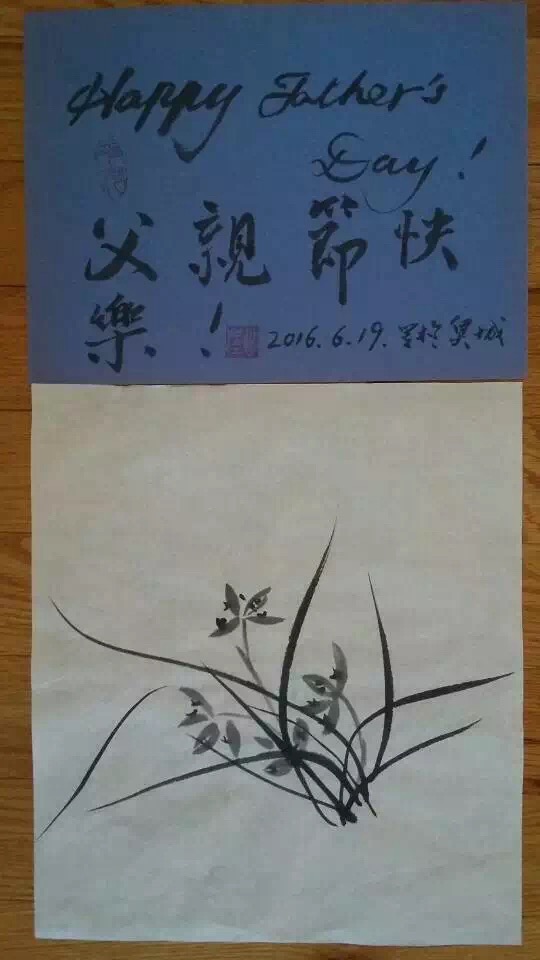 Happy Father's
Day!
父親節快
樂! 2016.6.19.